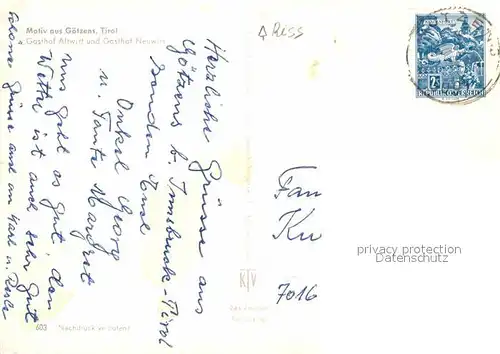 Motiv aus Götzens, Tirol
Gasthof Altwirt und Gasthof Neuwirt
Herzliche Grüsse aus
Götzens b. Innsbruck-Tirol
senden Euch
Onkel Georg
u. Tante Margret
uns geht es gut, das
Wetter ist auch sehr gut
schöne Grüsse auch an Karl u.
RISS
Fam
Ku
7016
privacy protection
Datenschutz
KTV
603 Nachdruck verboten!
REPUBLIK ÖSTERREICH